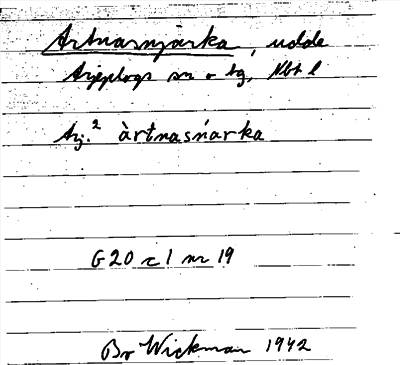 Artnasnjarka, udde
Arjeplogs sn o tg, Nbt l
Arj.² àrtnasńarka
G 20 c 1 nr 19
Bo Wickman 1942